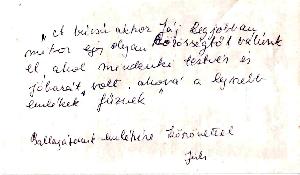 „A búcsú akkor fáj legjobban
mikor egy olyan közösségtől válunk
el, ahol mindenki testvér és
jóbarát volt, ahová a legszebb
emlékek fűznek"
Ballagásunk emlékére szeretettel
Juli